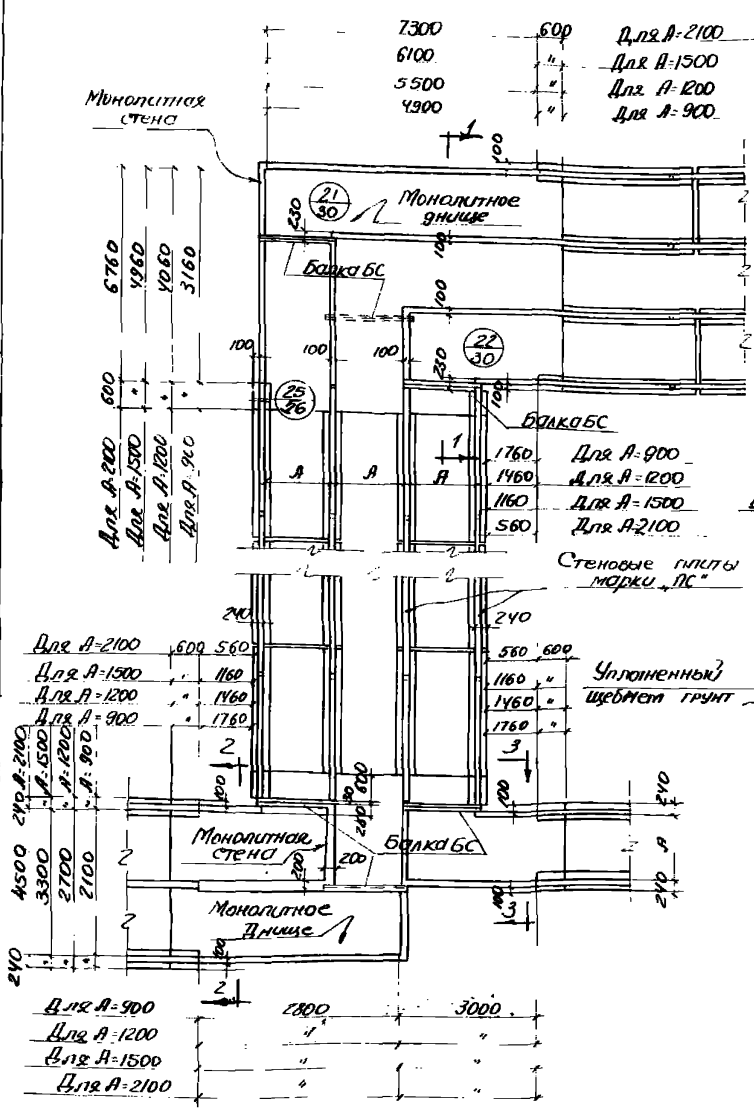 7300 600 Для А=2100
6100 " Для А=1500
5500 " Для А=1200
4900 " Для А=900
Монолитная
стена
1
100
21
30
Монолитное
днище
230
6760
4960
4060
3160
Балка БС
100
100
100 100 100
22
30
230
100
25
26
600 " " "
Балка БС
Для А=2100
Для А=1500
Для А=1200
Для А=900
А А А
1
1760 Для А=900
1460 Для А=1200
1160 Для А=1500
560 Для А=2100
Стеновые плиты
марки „ПС"
240 240
Для А=2100 600 560
Для А=1500 " 1160
Для А=1200 " 1460
Для А=900 " 1760
560 600
1160 "
1460 "
1760 "
Уплотненный
щебнем грунт
2
3
А=2100
" А=1500
" А=1200
" А=900
240
4500
3300
2700
2100
240
100
600
100
240
Монолитная
стена
Балка БС
200
200
А
240
100
3
Монолитное
днище
100
2
Для А=900 2800 3000
Для А=1200 " "
Для А=1500 " "
Для А=2100 " "